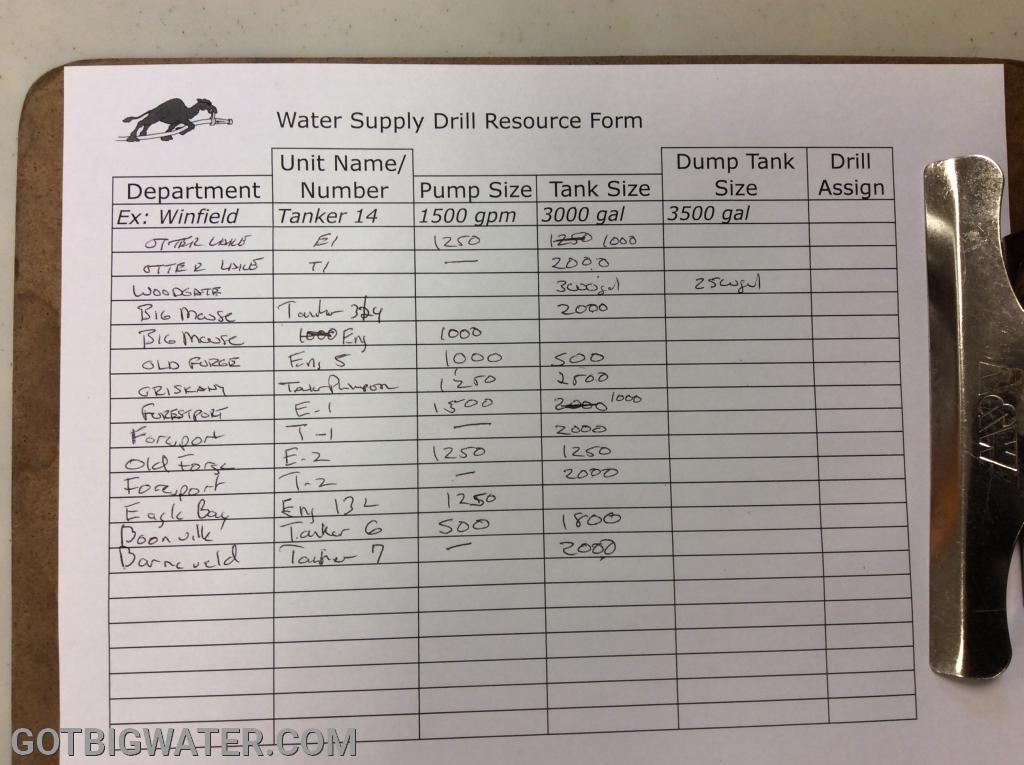 Water Supply Drill Resource Form
Department Unit Name/ Number Pump Size Tank Size Dump Tank Size Drill Assign
Ex: Winfield Tanker 14 1500 gpm 3000 gal 3500 gal
OTTER LAKE E1 1250 1250 1000
OTTER LAKE T1 — 2000
WOODGATE 3000gal 2500gal
BIG Moose Tanker 2000
BIG Moose 1000 Eng 1000
OLD FORGE Eng 5 1000 500
ORISKANY 1250 2500
FORESTPORT E-1 1500 2000 1000
Forepport T-1 — 2000
Old Forge E-2 1250 1250
Forepport T-2 — 2000
Eagle Bay Eng 1250
Boonville Tanker 6 500 1800
Barneveld Tanker 7 — 2000
GOTBIGWATER.COM